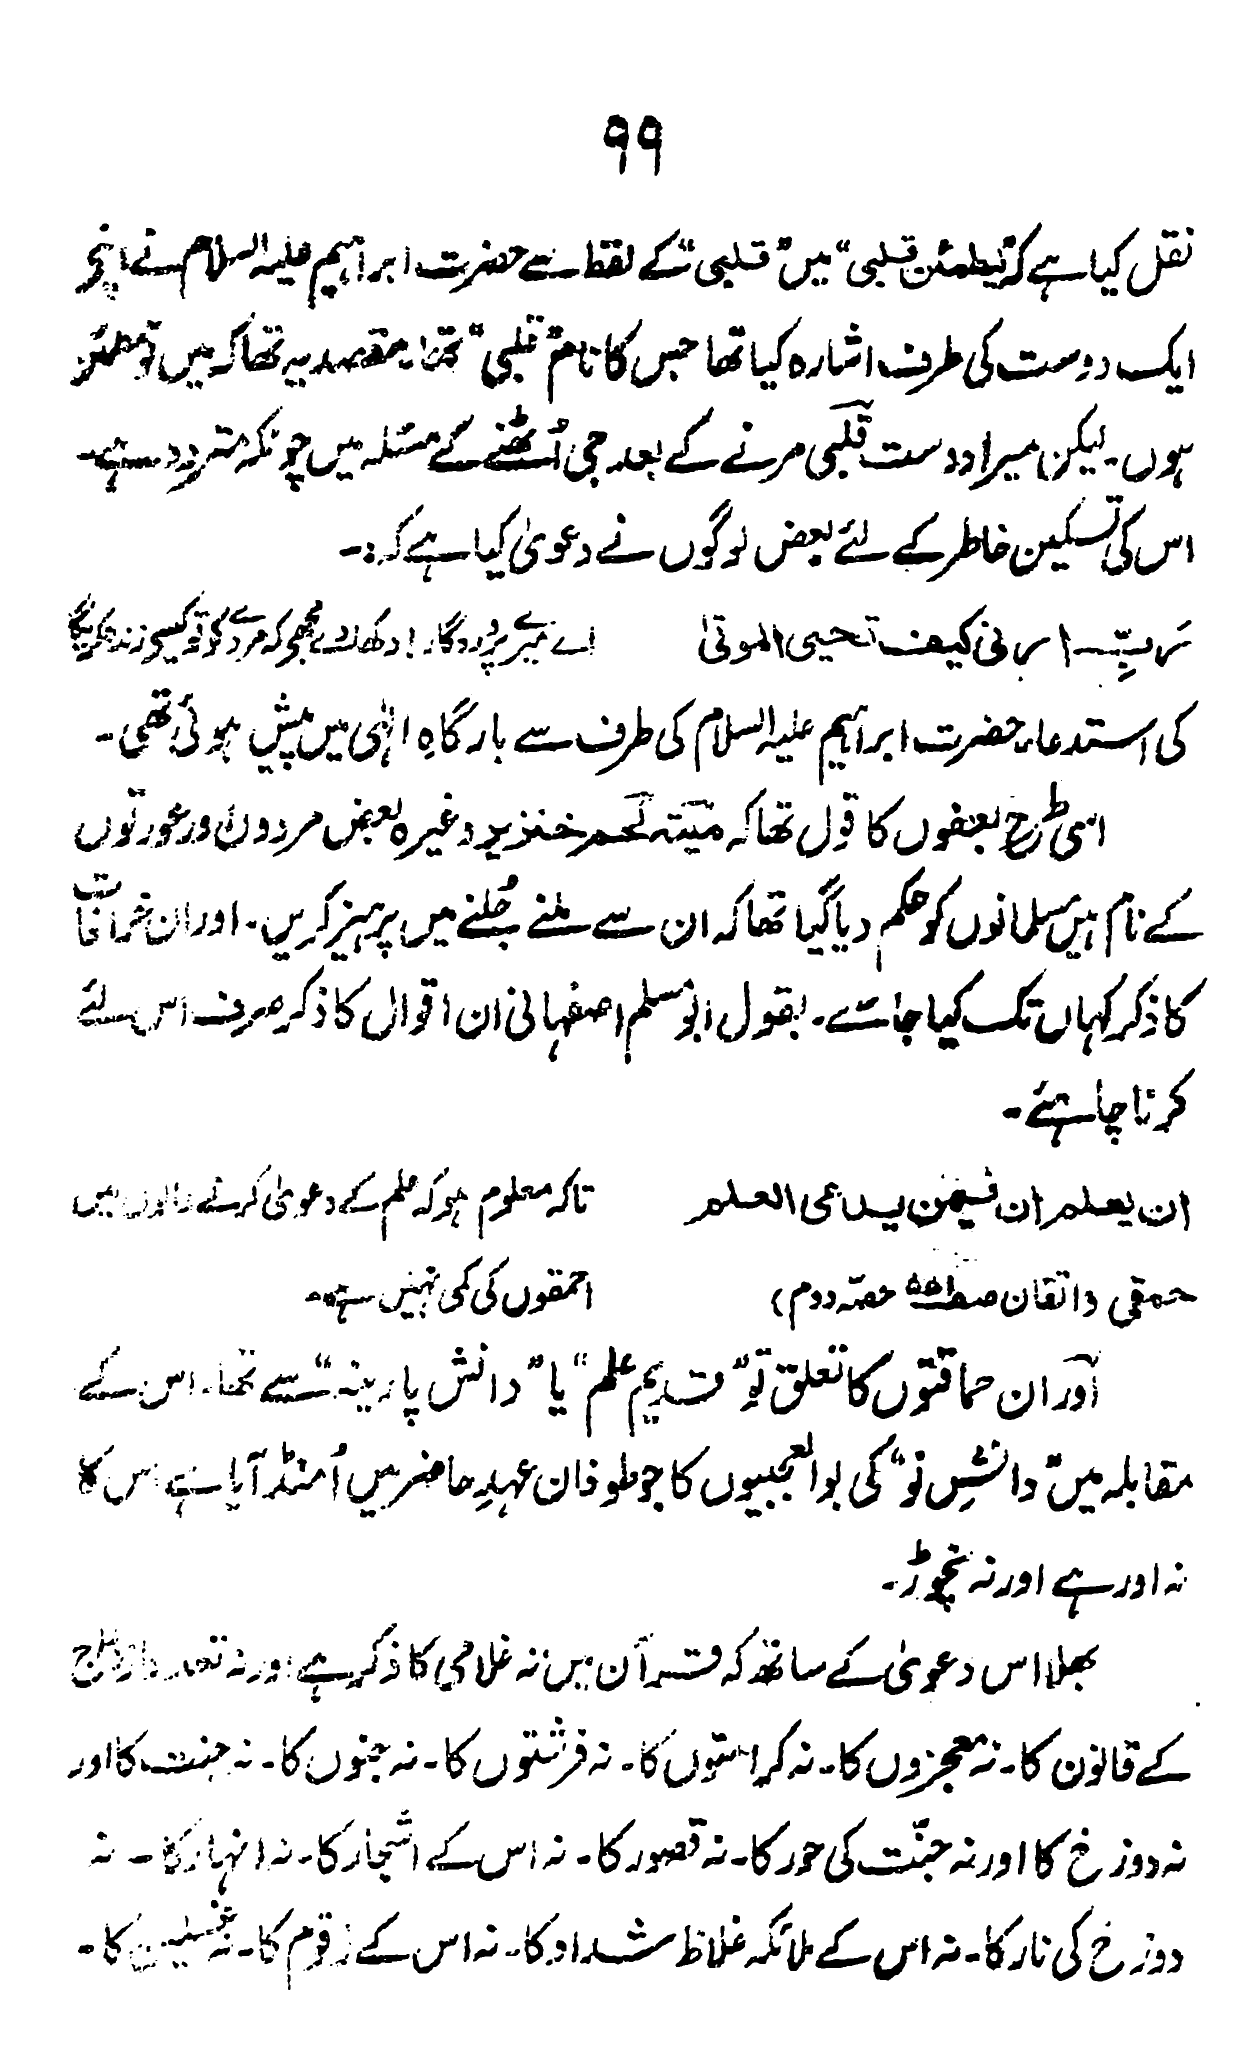 ۹۹
نقل کیا ہے کہ "لیطمئن قلبی" میں "قلبی" کے لفظ سے حضرت ابراہیم علیہ السلام نے اپنے
ایک دوست کی طرف اشارہ کیا تھا جس کا نام "قلبی" تھا۔ مقصد یہ تھا کہ میں تو مطمئن
ہوں۔ لیکن میرا دوست قلبی مرنے کے بعد جی اُٹھنے کے مسئلہ میں چونکہ متردد ہے۔
اس کی تسکین خاطر کے لئے بعض لوگوں نے دعویٰ کیا ہے کہ:۔
رَبِّ ارنی کیف تحیی الموتیٰ اے میرے پروردگار! دکھلادے مجھے کہ مردے کو تو کیسے زندہ کریگا
کی استدعاء حضرت ابراہیم علیہ السلام کی طرف سے بارگاہِ الٰہی میں پیش ہوئی تھی۔
اسی طرح بعضوں کا قول تھا کہ میتہ لحم خنزیر وغیرہ بعض مردوں اور عورتوں
کے نام ہیں مسلمانوں کو حکم دیا گیا تھا کہ ان سے ملنے جُلنے میں پرہیز کریں۔ اور ان خرافات
کا ذکر کہاں تک کیا جائے۔ بقول ابو مسلم اصفہانی ان اقوال کا ذکر صرف اس لئے
کرنا چاہئے۔
ان یعلم ان فیمن یدعی العلم تاکہ معلوم ہو کہ علم کے دعویٰ کرنے والوں میں
حمقی (اتقان حصہ دوم) احمقوں کی کمی نہیں ہے۔
اَور ان حماقتوں کا تعلق تو "قدیم علم" یا "دانش پارینہ" سے تھا۔ اس کے
مقابلہ میں "دانشِ نو" کی بوالعجبیوں کا جو طوفان عہدِ حاضر میں اُمنڈ آیا ہے اس کا
نہ اور ہے اور نہ نچوڑ۔
بھلا اس دعویٰ کے ساتھ کہ قرآن میں نہ غلامی کا ذکر ہے اور نہ تعدد ازدواج
کے قانون کا۔ نہ معجزوں کا۔ نہ کرامتوں کا۔ نہ فرشتوں کا۔ نہ جنوں کا۔ نہ جنت کا اور
نہ دوزخ کا اور نہ جنّت کی حور کا۔ نہ قصور کا۔ نہ اس کے اشجار کا۔ نہ انہار کا۔ نہ
دوزخ کی نار کا۔ نہ اس کے ملائکہ غلاظ شداد کا۔ نہ اس کے زقوم کا۔ نہ غسلین کا۔